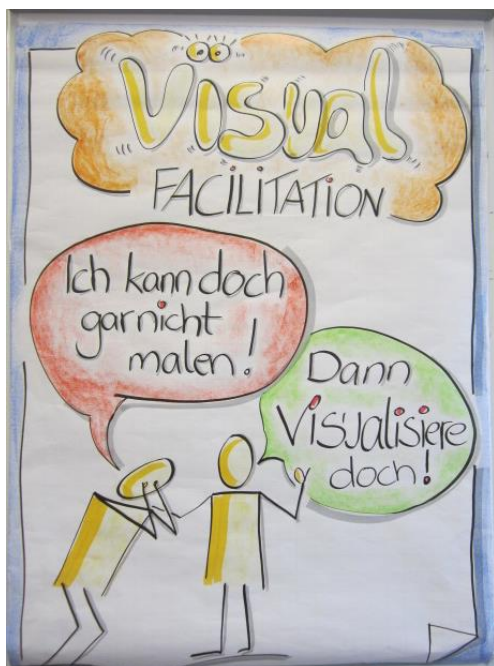 Visual
FACILITATION
Ich kann doch
garnicht
malen!
Dann
Visualisiere
doch!